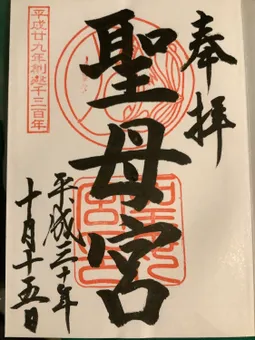 奉拝
聖母宮
平成三十年
十月十五日
平成廿九年創祀千三百年